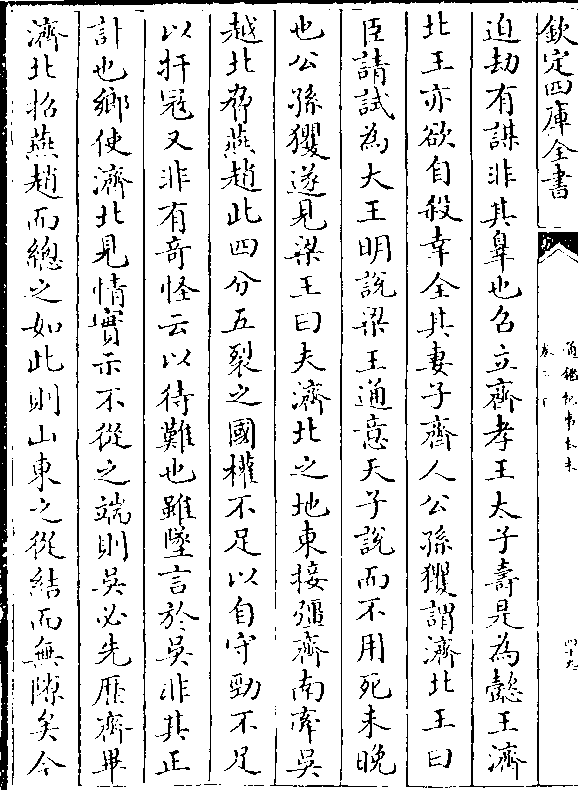 欽定四庫全書
通鑑紀事本末
迫劫有謀非其辠也召立齊孝王太子壽是為懿王濟
北王亦欲自殺幸全其妻子齊人公孫玃謂濟北王曰
臣請試為大王明說梁王通意天子說而不用死未晚
也公孫玃遂見梁王曰夫濟北之地東接彊齊南牽吳
越北脅燕趙此四分五裂之國權不足以自守勁不足
以扞寇又非有奇怪云以待難也雖墜言於吳非其正
計也鄉使濟北見情實示不從之端則吳必先歷齊畢
濟北招燕趙而總之如此則山東之從結而無隙矣今